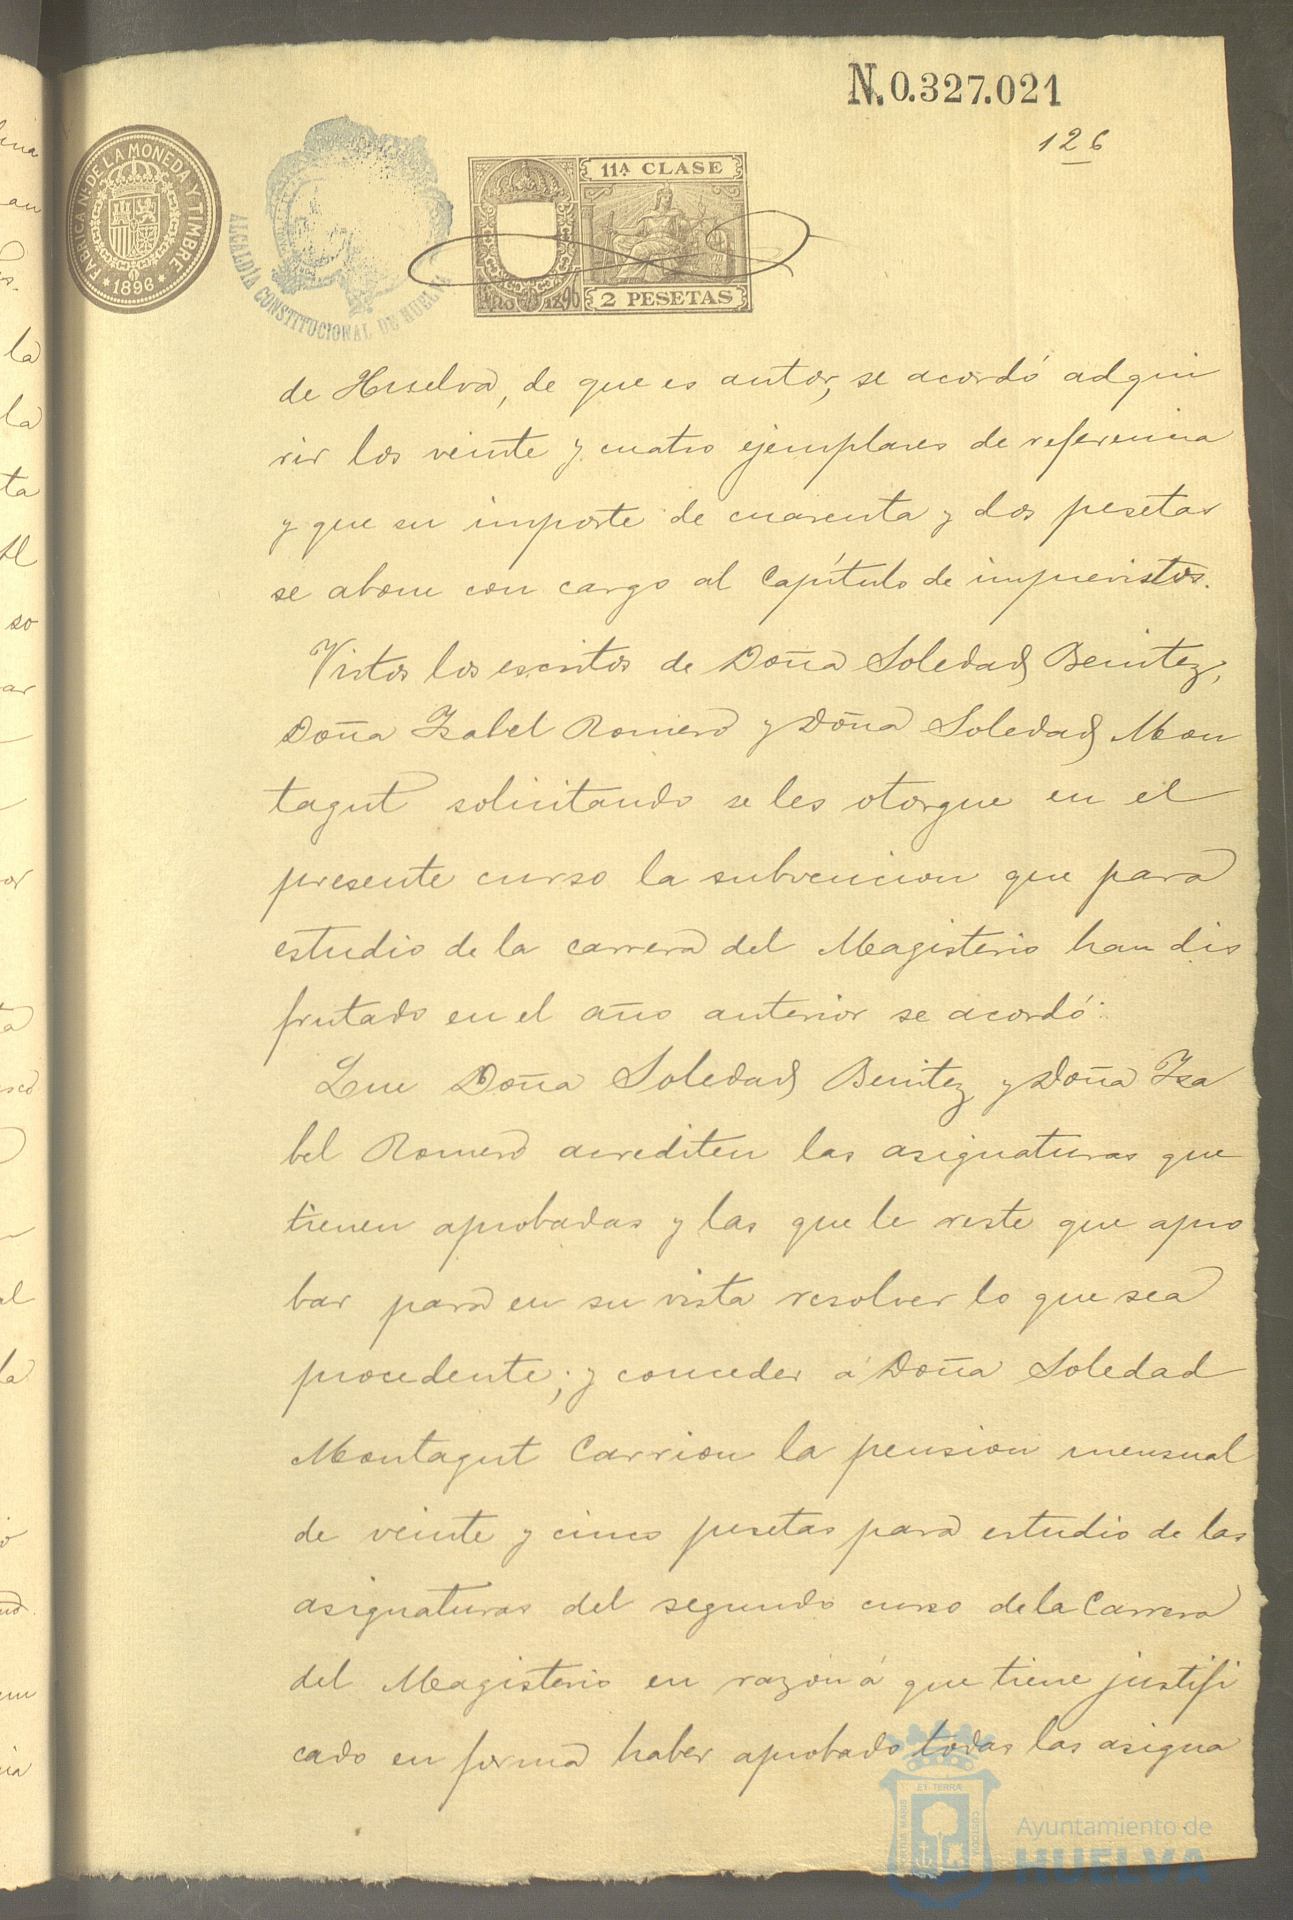 N. 0.327.021
126
FABRICA Nl. DE LA MONEDA Y TIMBRE
* 1896 *
ALCALDÍA CONSTITUCIONAL DE HUELVA
11ª CLASE
2 PESETAS
1896
de Huelva, de que es autor, se acordó adqui
rir los veinte y cuatro ejemplares de referencia
y que su importe de cuarenta y dos pesetas
se abone con cargo al Capítulo de imprevistos.
Vistos los escritos de Doña Soledad Benitez,
Doña Isabel Romero y Doña Soledad Mon
tagut solicitando se les otorgue en el
presente curso la subvencion que para
estudio de la carrera del Magisterio han dis
frutado en el año anterior se acordó:
Que Doña Soledad Benitez y Doña Isa
bel Romero acrediten las asignaturas que
tienen aprobadas y las que le reste que apro
bar para en su vista resolver lo que sea
procedente; y conceder á Doña Soledad
Montagut Carrion la pension mensual
de veinte y cinco pesetas para estudio de las
asignaturas del segundo curso de la Carrera
del Magisterio en razon á que tiene justifi
cado en forma haber aprobado todas las asigna
Ayuntamiento de
HUELVA